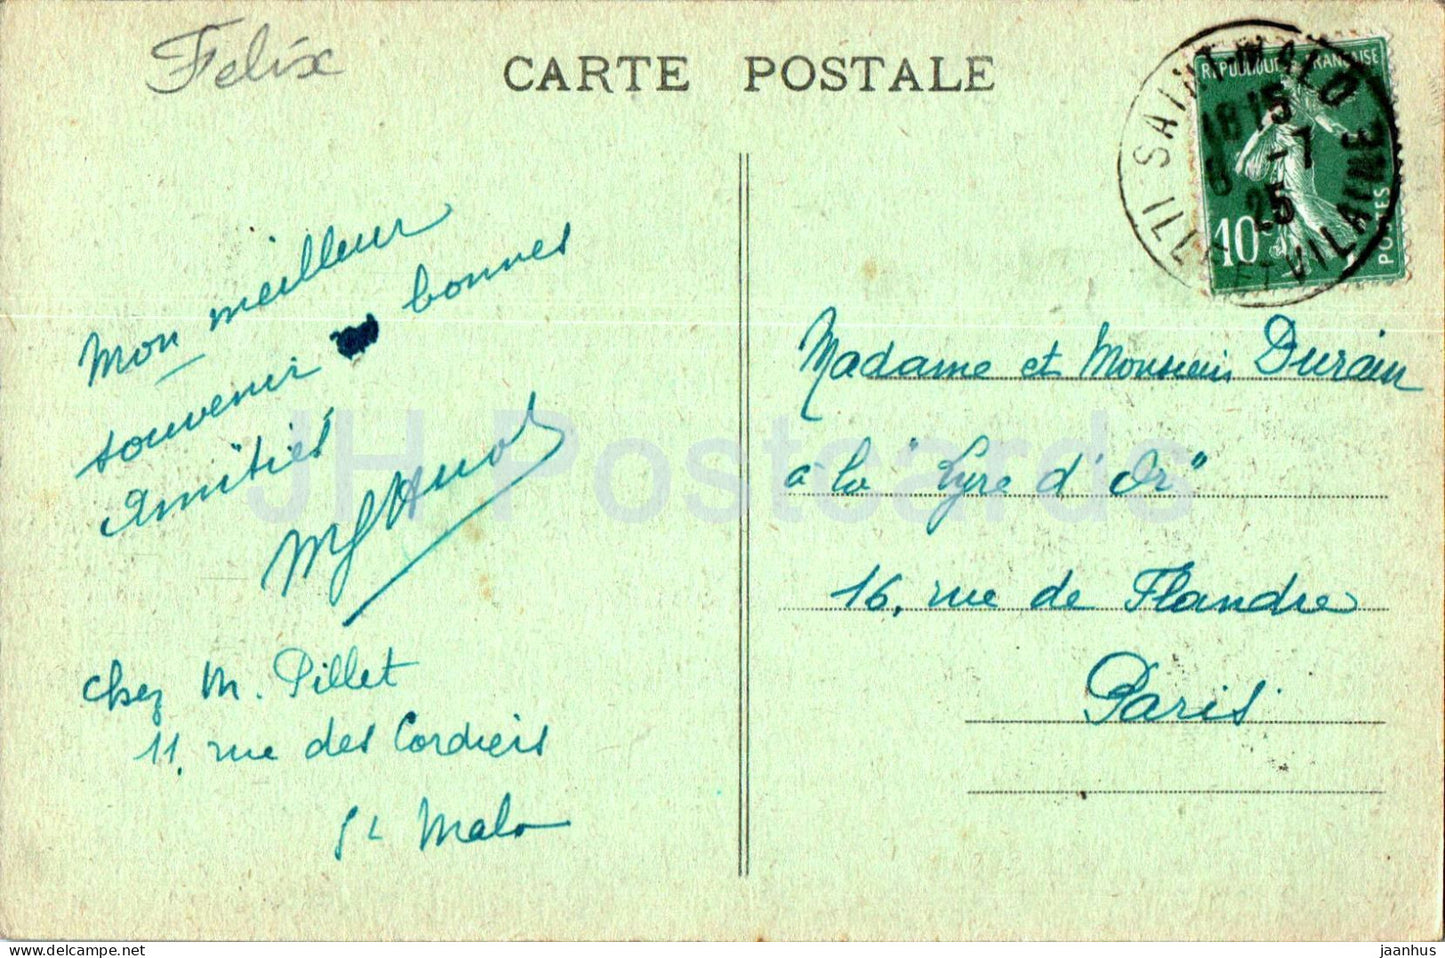 Felix
CARTE POSTALE
REPUBLIQUE FRANÇAISE
SAINT-MALO
ILLE ET VILAINE
1815
-7
25
10c
POSTES
Mon meilleur
souvenir bonnes
Amitiés
chez M. Pillet
11, rue des Cordiers
St Malo
Madame et Monsieur Durain
à la "Lyre d'Or"
16, rue de Flandre
Paris
JH Postcards
© www.delcampe.net
jaanhus